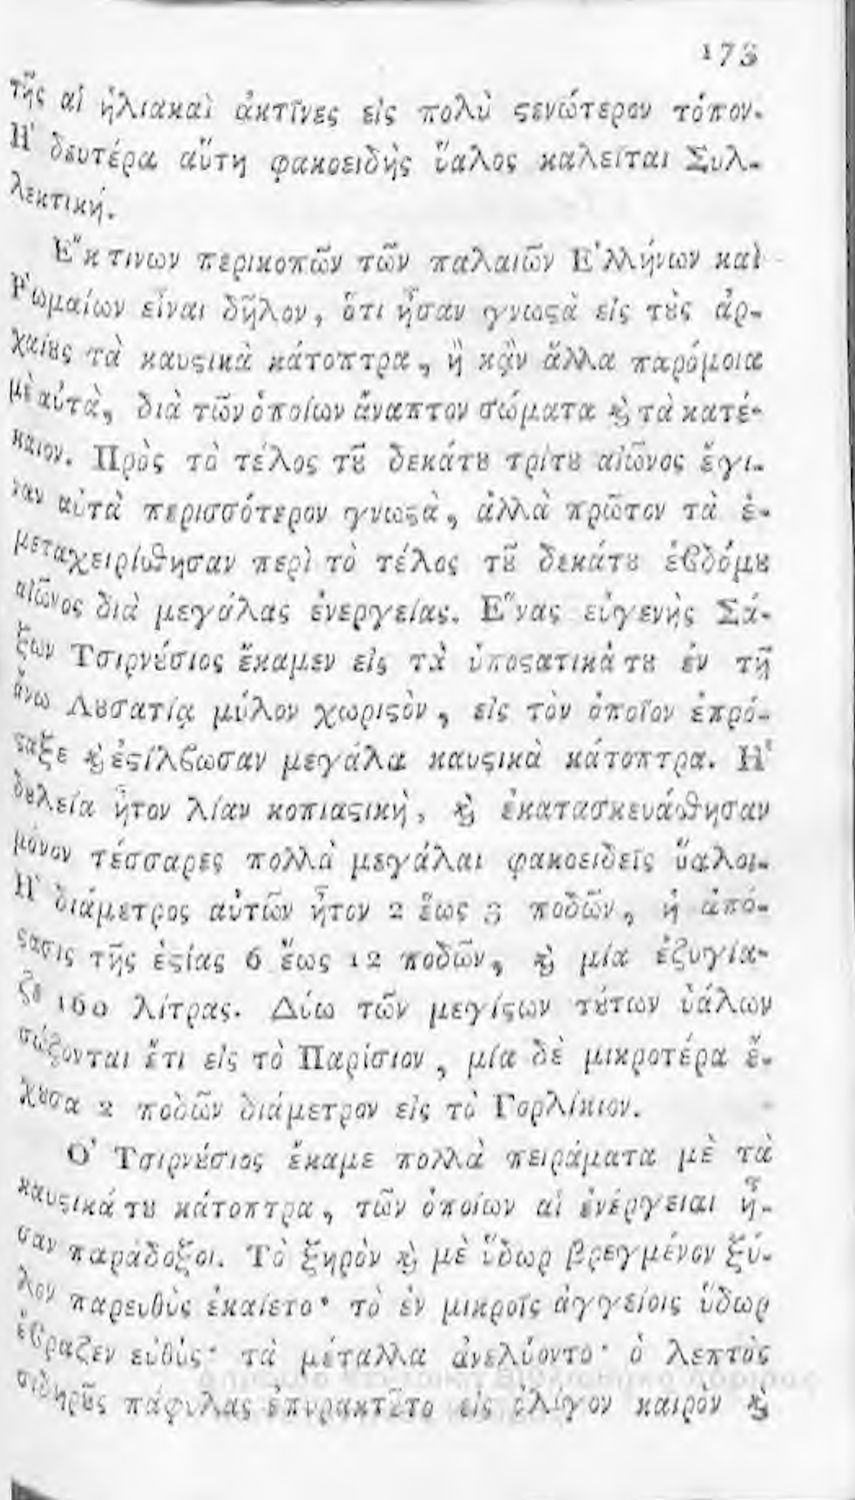 173
τῆς αἱ ἡλιακαὶ ἀκτῖνες εἰς πολὺ ϛενώτερον τόπον.
Η῾ δευτέρα αὕτη φακοειδὴς ὕαλος καλεῖται Συλ-
λεκτική.
Ε῎κ τινων περικοπῶν τῶν παλαιῶν Ε῾λλήνων καὶ
Ρ῾ωμαίων εἶναι δῆλον, ὅτι ἦσαν γνωϛὰ εἰς τȣ̀ς ἀρ-
χαίȣς τὰ καυϛικὰ κάτοπτρα, ἢ κᾂν ἄλλα παρόμοια
μὲ αὐτὰ, διὰ τῶν ὁποίων ἄναπτον σώματα ϗ̀ τὰ κατέ-
καιον. Πρὸς τὸ τέλος τȣ͂ δεκάτȣ τρίτȣ αἰῶνος ἔγι-
ναν αὐτὰ περισσότερον γνωϛὰ, ἀλλὰ πρῶτον τὰ ἐ-
μεταχειρίσθησαν περὶ τὸ τέλος τȣ͂ δεκάτȣ ἑβδόμȣ
αἰῶνος διὰ μεγάλας ἐνεργείας. Ε῞νας εὐγενὴς Σά-
ξων Τσιρνȣ́σιος ἔκαμεν εἰς τὰ ὑποϛατικά τȣ ἐν τῇ
ἄνω Λȣσατίᾳ μύλον χωριϛὸν, εἰς τὸν ὁποῖον ἐπρό-
ϛαξε ϗ̀ ἐϛίλβωσαν μεγάλα καυϛικὰ κάτοπτρα. Η῾
δȣλεία ἦτον λίαν κοπιαϛικὴ, ϗ̀ ἐκατασκευάσθησαν
μόνον τέσσαρες πολλὰ μεγάλαι φακοειδεῖς ὕαλοι.
Η῾ διάμετρος αὐτῶν ἦτον 2 ἕως 3 ποδῶν, ἡ ἀπό-
ϛασις τῆς ἑϛίας 6 ἕως 12 ποδῶν, ϗ̀ μία ἐζυγία-
ζε 160 λίτρας. Δύω τῶν μεγίϛων τȣ́των ὑάλων
σώζονται ἔτι εἰς τὸ Παρίσιον, μία δὲ μικροτέρα ἔ-
χȣσα 2 ποδῶν διάμετρον εἰς τὸ Γορλίκιον.
Ο῾ Τσιρνȣ́σιος ἔκαμε πολλὰ πειράματα μὲ τὰ
καυϛικά τȣ κάτοπτρα, τῶν ὁποίων αἱ ἐνέργειαι ἦ-
σαν παράδοξοι. Τὸ ξηρὸν ϗ̀ μὲ ὕδωρ βρεγμένον ξύ-
λον παρευθὺς ἐκαίετο· τὸ ἐν μικροῖς ἀγγείοις ὕδωρ
ἔβραζεν εὐθύς· τὰ μέταλλα ἀνελύοντο· ὁ λεπτὸς
σιδηρȣ͂ς πάφυλας ἐπυρακτȣ͂το εἰς ὀλίγον καιρὸν ϗ̀